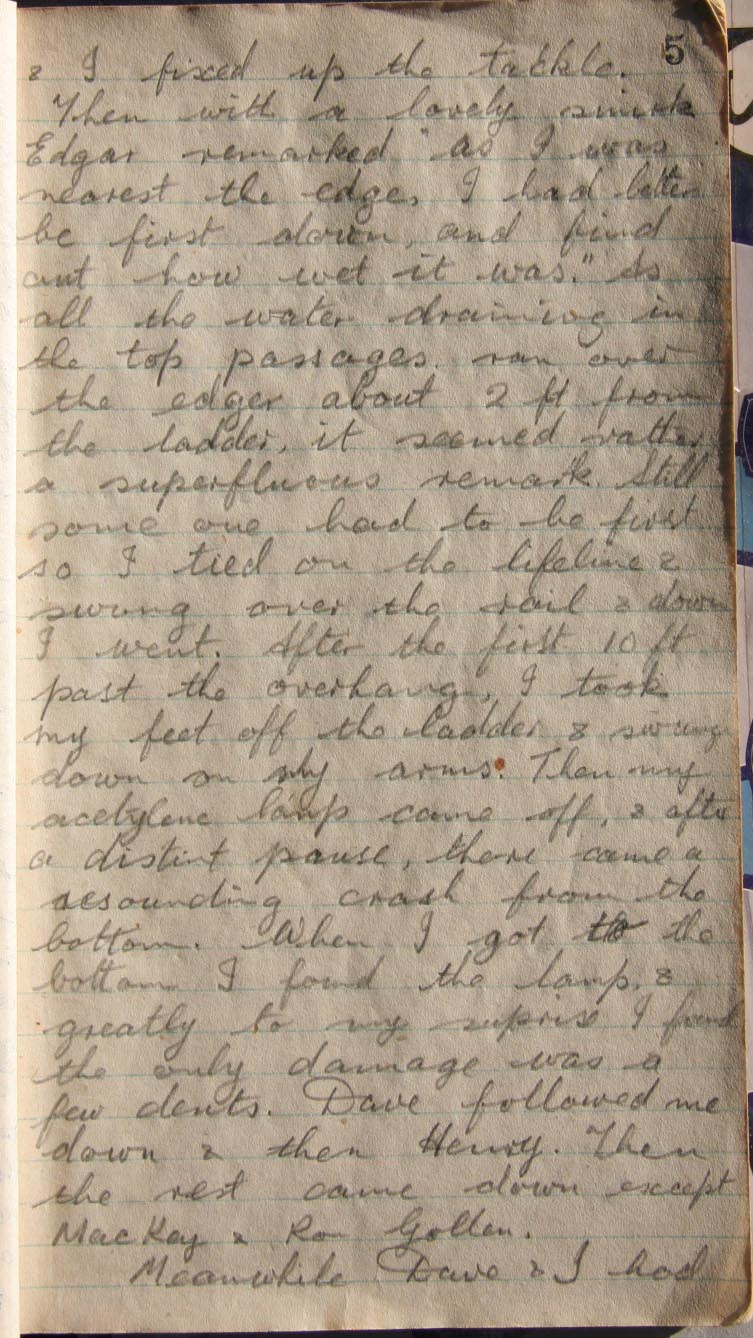 5
& I fixed up the tackle.
Then with a lovely smirk
Edgar remarked "as I was
nearest the edge, I had better
be first down, and find
out how wet it was." As
all the water draining in
the top passages ran over
the edger about 2 ft from
the ladder, it seemed rather
a superfluous remark. Still
some one had to be first
so I tied on the lifeline &
swung over the rail & down
I went. After the first 10 ft
past the overhang, I took
my feet off the ladder & swung
down on my arms. Then my
acetylene lamp came off, & after
a distint pause, there came a
resounding crash from the
bottom. When I got to the
bottom I found the lamp, &
greatly to my suprise I found
the only damage was a
few dents. Dave followed me
down & then Henry. Then
the rest came down except
MacKay & Ron
Meanwhile Dave & I had